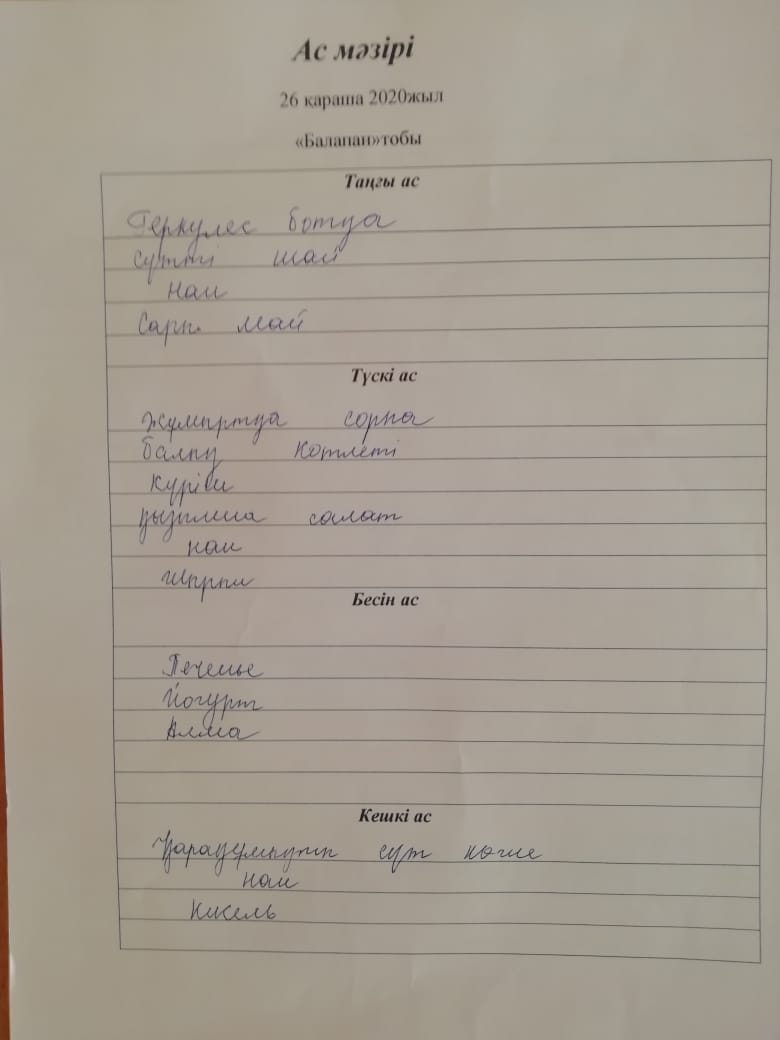 Ас мәзірі
26 қараша 2020жыл
«Балапан»тобы
Таңғы ас
Геркулес ботқа
сүтті шай
нан
Сары май
Түскі ас
жұмыртқа сорпа
балық котлеті
күріш
қызылша салат
нан
шырын
Бесін ас
Печенье
Йогурт
Алма
Кешкі ас
Қарақұмықты сүт көже
нан
Кисель